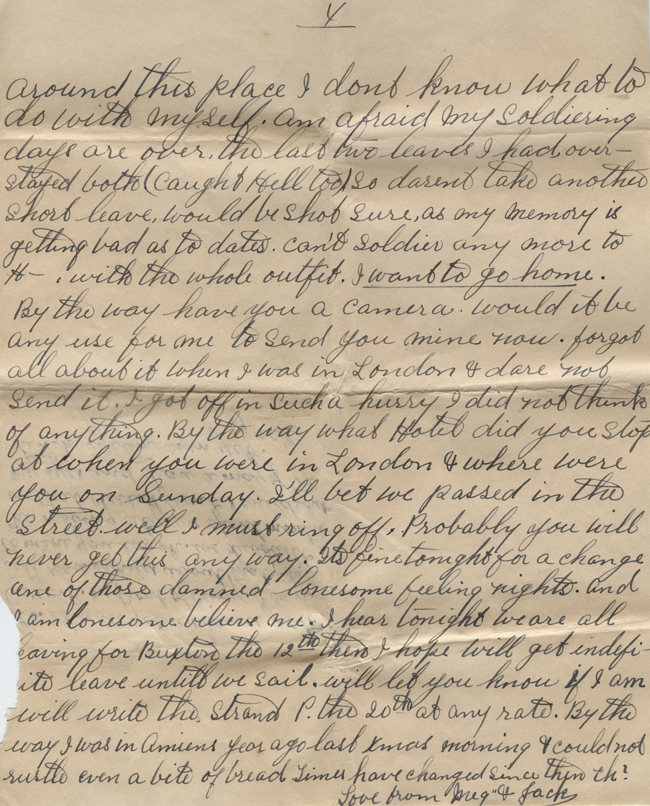 4
around this place I dont know what to
do with myself. am afraid my soldiering
days are over. the last two leaves I had over-
stayed both (caught Hell too) so darent take another
short leave, would be shot sure, as my memory is
getting bad as to dates. can't soldier any more to
H- . with the whole outfit. I want to go home.
By the way have you a camera. would it be
any use for me to send you mine now. forgot
all about it when I was in London & dare not
send it. I got off in such a hurry I did not think
of anything. By the way what Hotel did you stop
at when you were in London & where were
you on Sunday. I'll bet we passed in the
street. well I must ring off. Probably you will
never get this any way. Its fine tonight for a change
one of those damned lonesome feeling nights. and
I am lonesome believe me. I hear tonight we are all
leaving for Buxton the 12th then I hope will get indefi-
ite leave until we sail. will let you know if I am
will write the Strand P. the 20th at any rate. By the
way I was in Amiens year ago last Xmas morning & could not
rustle even a bite of bread Times have changed since then eh?
Love from "Meg" & Jack